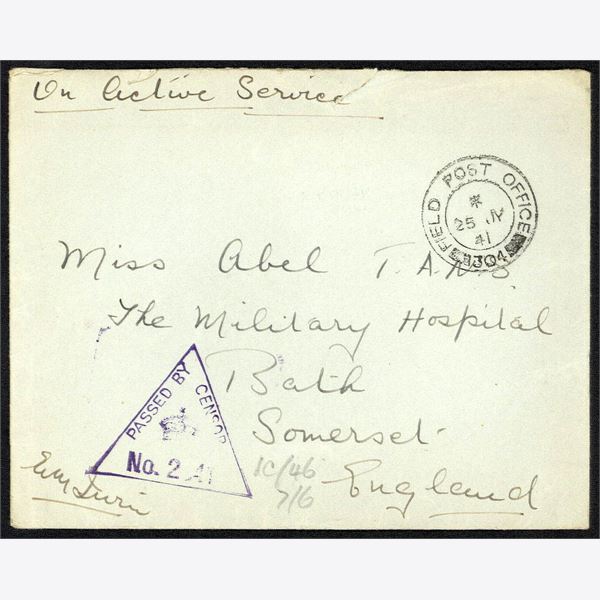 On Active Service
FIELD POST OFFICE
*
25 JY
41
304
Miss Abel T.A.N.S
The Military Hospital
Bath
Somerset
England
PASSED BY CENSOR
No. 2
1c/46
7/6